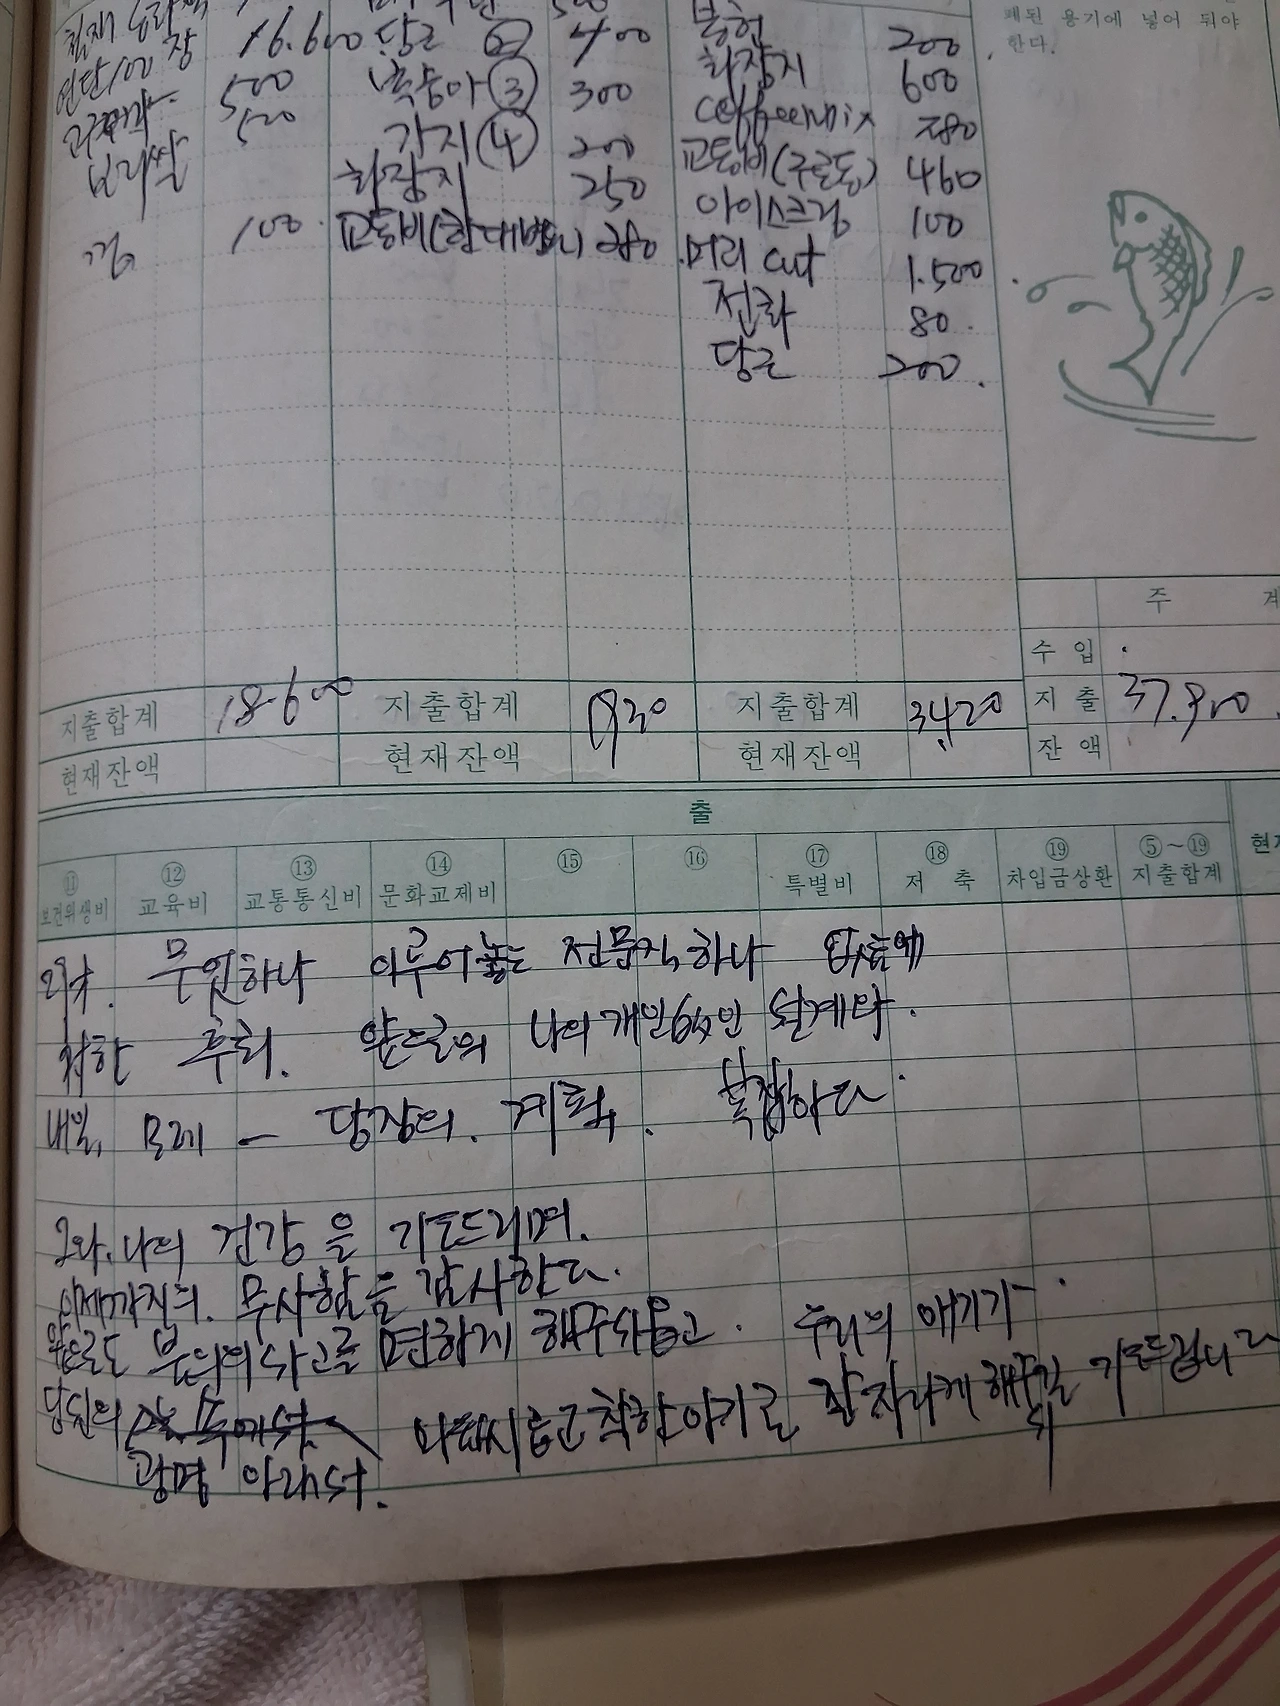 폐된 용기에 넣어 둬야
한다.
연탄100장 16.600 당근 ② 400 200
500 복숭아 ③ 300 화장지 600
보리쌀 520 가지 ④ 200 coffeemix 780
화장지 250 교통비(구로동) 460
김 100 교통비 280 아이스크림 100
머리 cut 1.500
전화 80
당근 200
주 계
수 입
지출합계 18.600 지출합계 930 지출합계 3420 지 출 37.900
현재잔액 현재잔액 현재잔액 잔 액
출
⑪ ⑫ ⑬ ⑭ ⑮ ⑯ ⑰ ⑱ ⑲ ⑤~⑲
보건위생비 교육비 교통통신비 문화교제비 특별비 저 축 차입금상환 지출합계
무엇하나 이루어놓는 전문직하나
후회. 앞으로의 나의 개인 설계다.
내일, 모레 — 당장의. 계획. 복잡하다.
그와. 나의 건강을 기도드리며.
이제까지의. 무사함을 감사한다.
앞으로도 불의의 사고를 면하게 해주시옵고. 우리의 애기가
당신의 착한 아기로 잘 자라게 기도드립니다
광명 아래서.